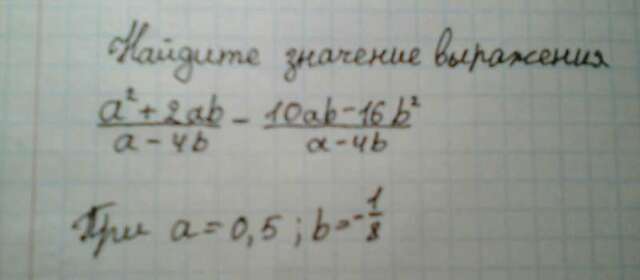 Найдите значение выражения
(a²+2ab)/(a-4b) - (10ab-16b²)/(a-4b)
При a=0,5; b=-1/8